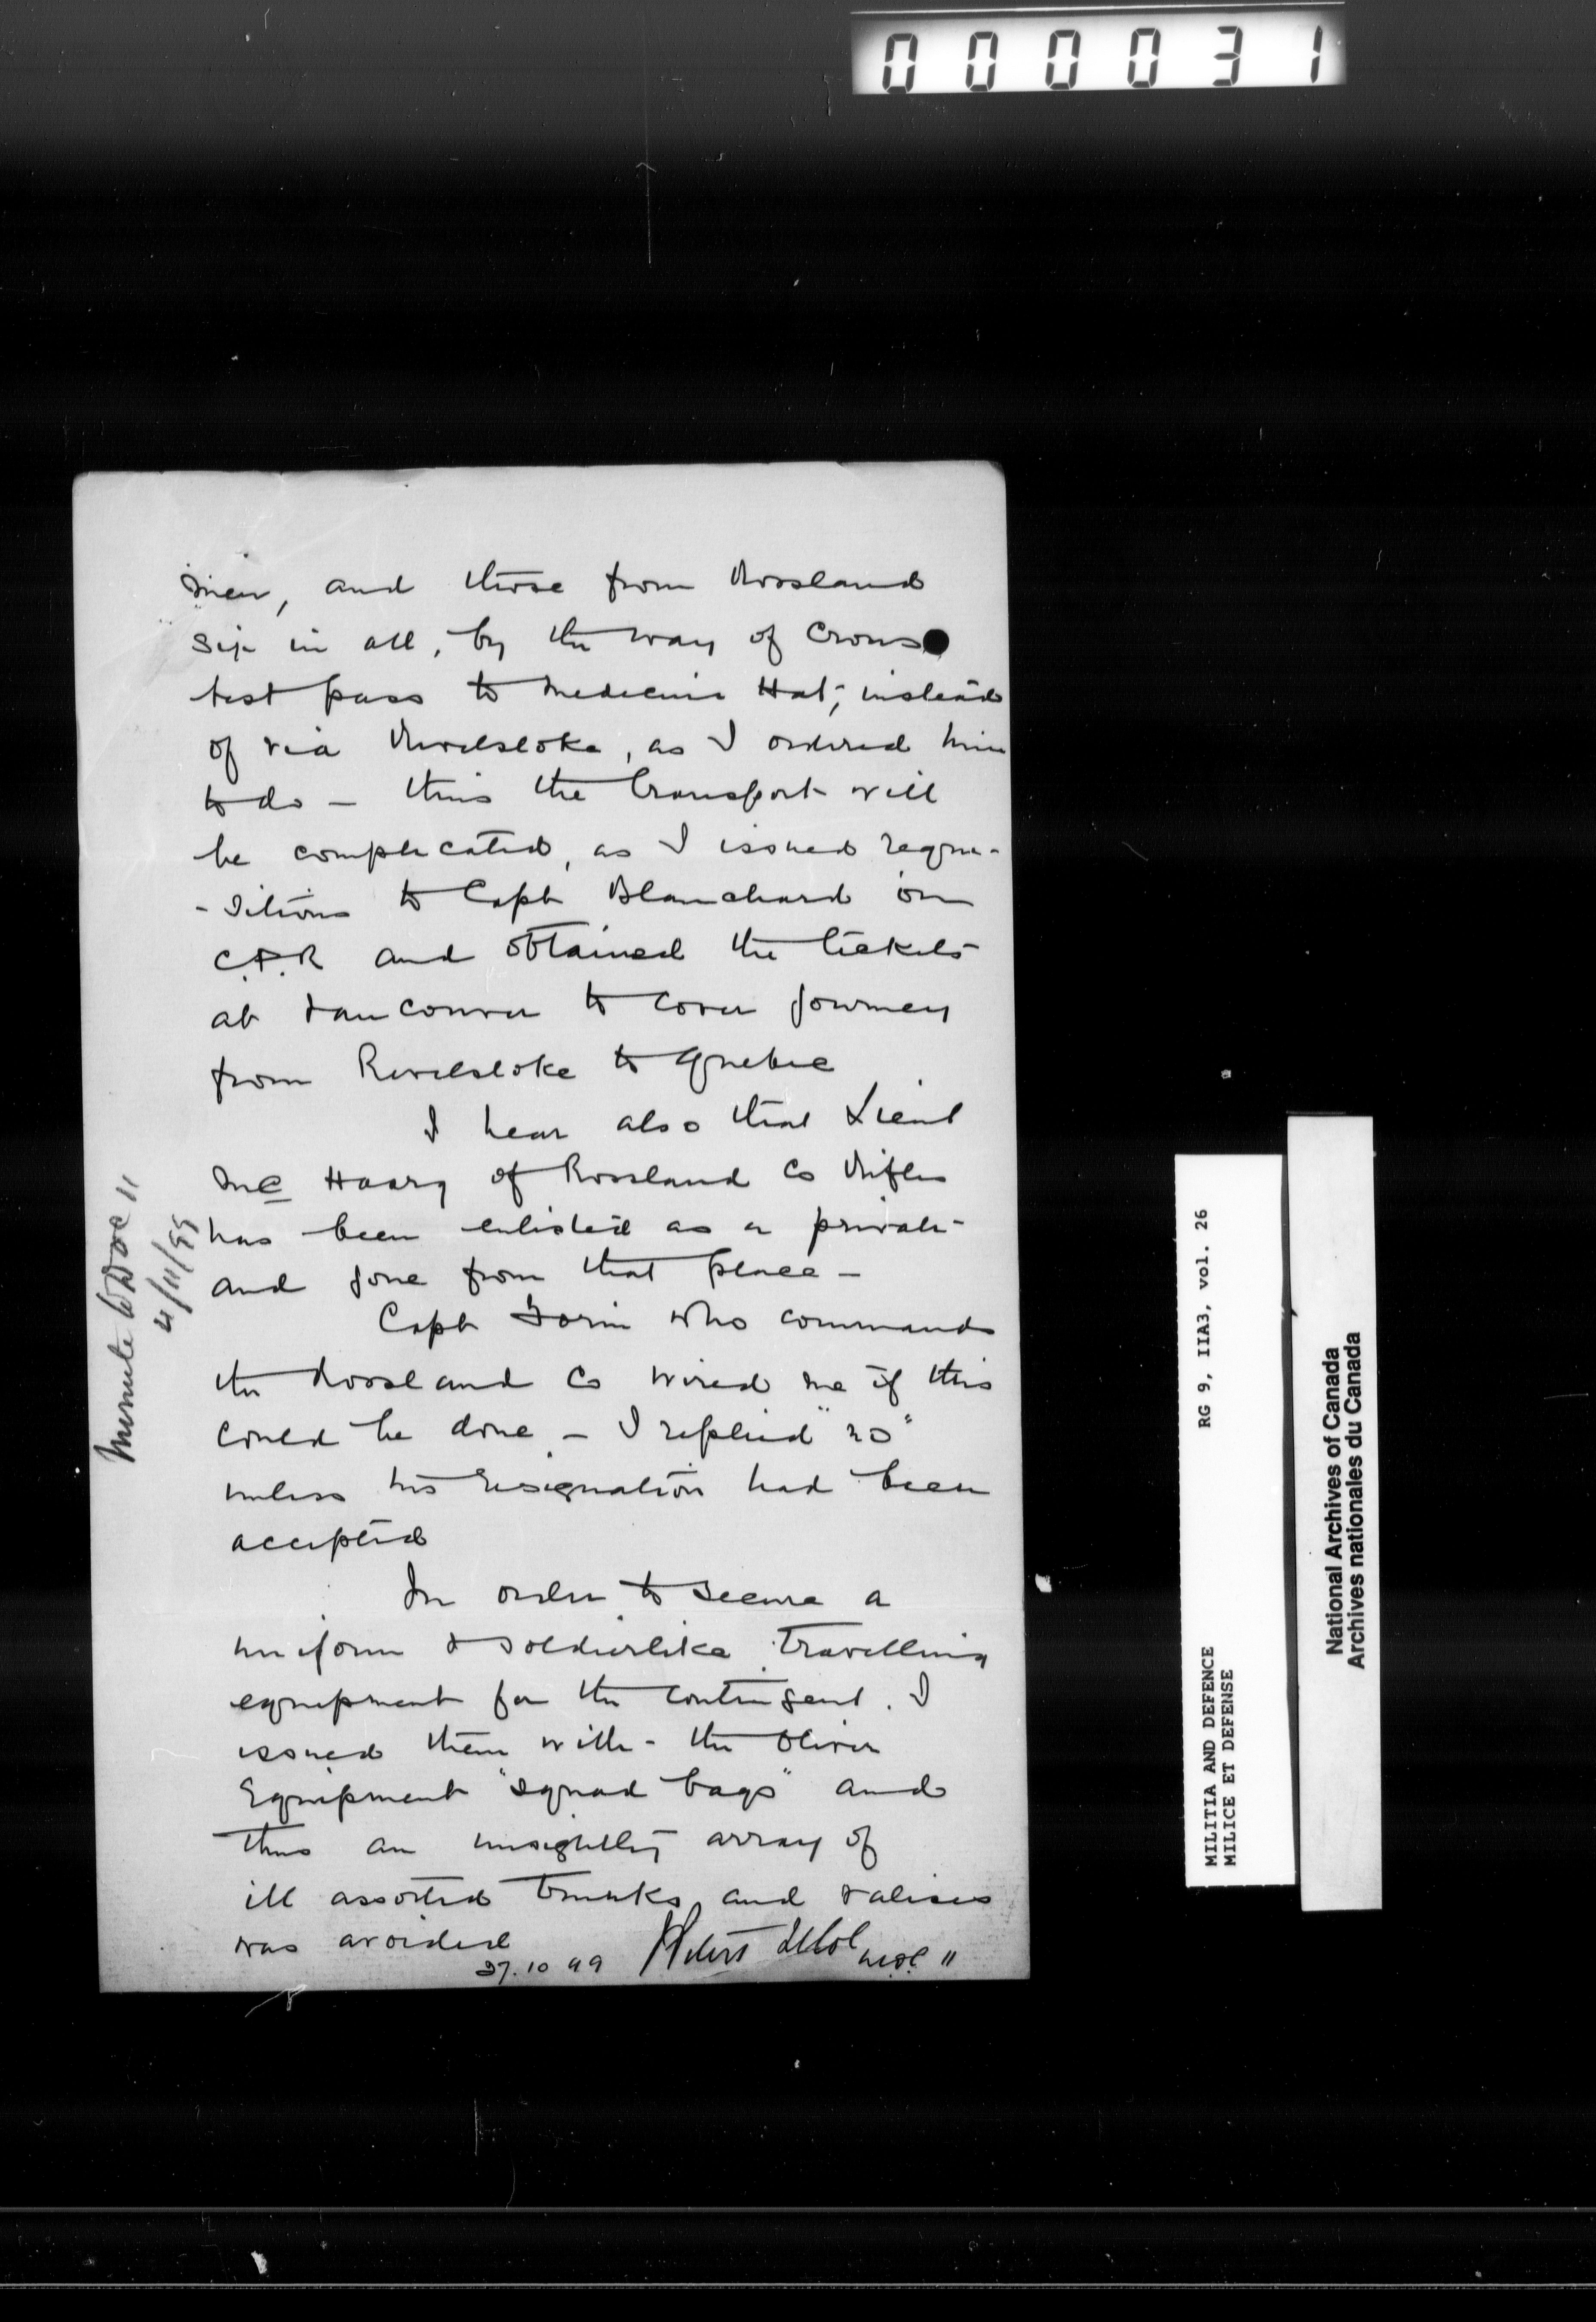 000031
men, and those from Rossland
six in all, by the way of Crows
nest pass to Medecine Hat, instead
of via Revelstoke, as I ordered him
to do — thus the transport will
be complicated, as I issued requi-
-sitions to Capt Blanchard on
C.P.R and obtained the tickets
at Vancouver to cover journey
from Revelstoke to Quebec
I hear also that Lieut
Mc Harg of Rossland Co Rifles
has been enlisted as a private
and gone from that place —
Capt Forin who commands
the Rossland Co wired me if this
could be done — I replied "no"
unless his resignation had been
accepted
In order to secure a
uniform & soldierlike travelling
equipment for the contingent. I
issued them with - the Oliver
Equipment "squad bags" and
thus an unsightly array of
ill assorted trunks, and valises
was avoided
27.10 99 Lt Col DOC 11
Minute to DOC 11
4/11/99
MILITIA AND DEFENCE RG 9, IIA3, vol. 26
MILICE ET DEFENSE
National Archives of Canada
Archives nationales du Canada